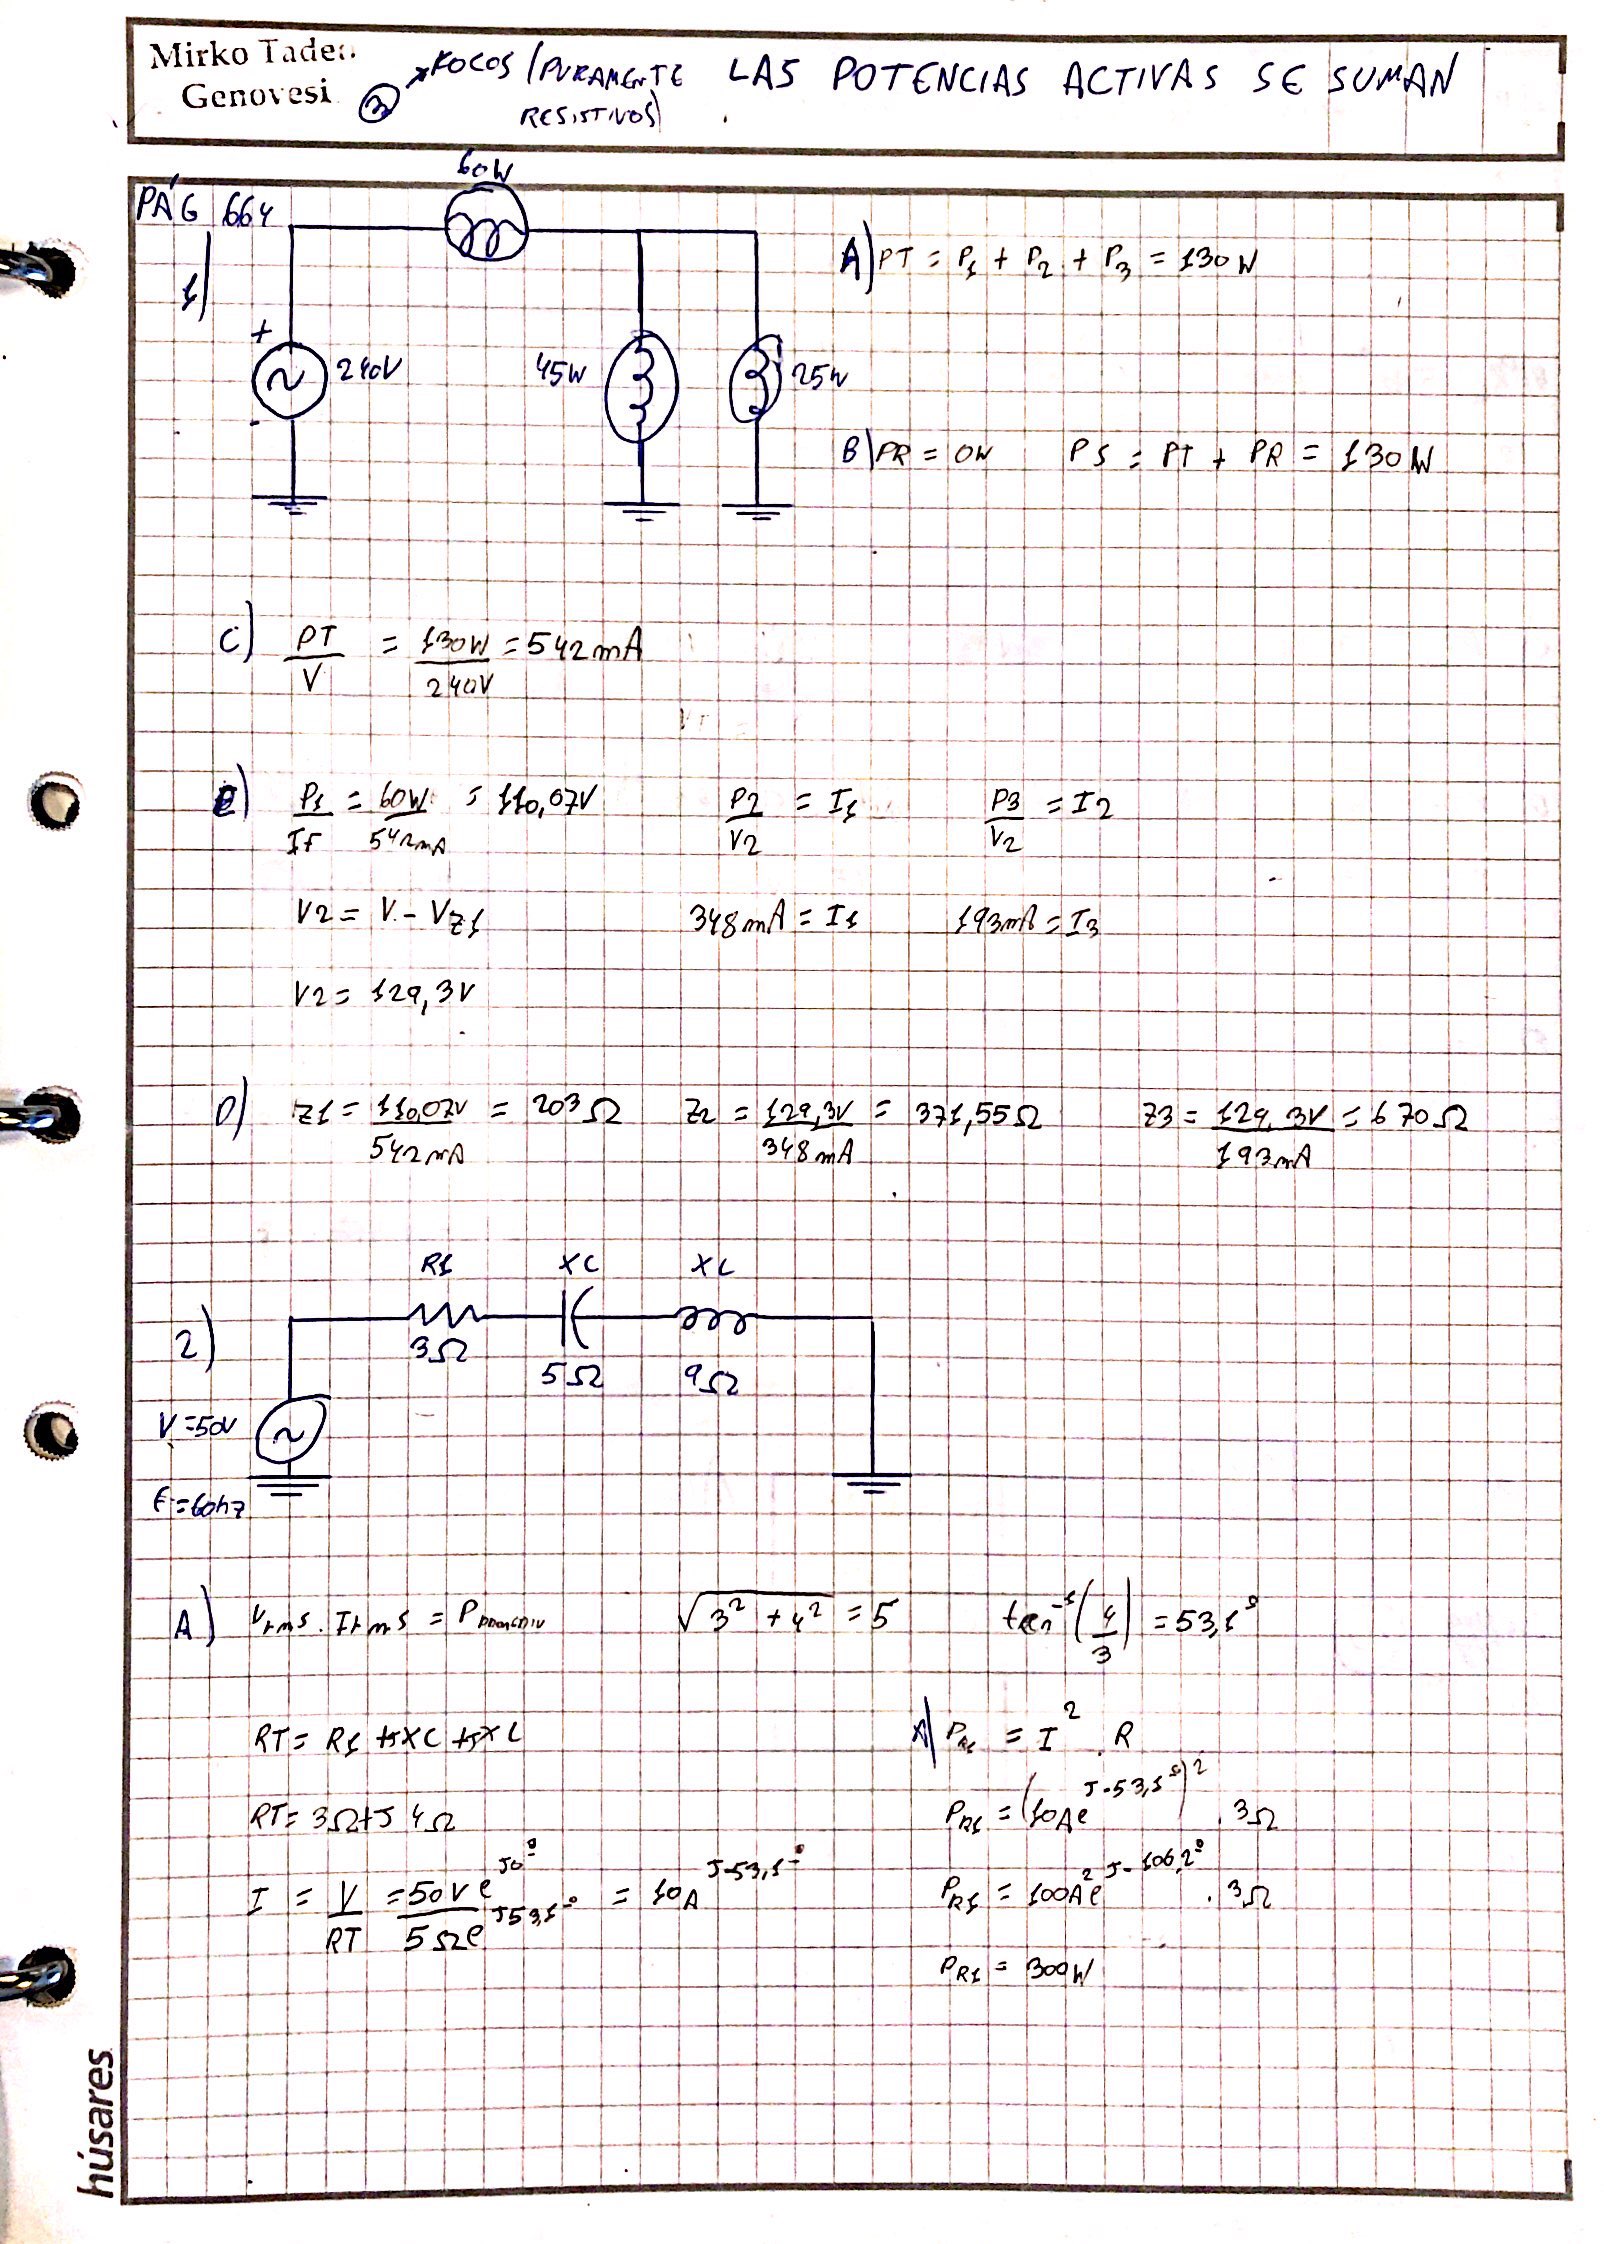 Mirko Tadeo
Genovesi
③ → FOCOS (PURAMENTE
RESISTIVOS)
LAS POTENCIAS ACTIVAS SE SUMAN
PÁG 664
1)
60W
+
240V
-
45W
25W
A) PT = P1 + P2 + P3 = 130W
B) PR = 0W PS = PT + PR = 130W
C) PT/V = 130W/240V = 542mA
E) P1/If = 60W/542mA = 110,07V P2/V2 = I1 P3/V2 = I2
V2 = V - VZ1 348mA = I1 193mA = I3
V2 = 129,3V
D) Z1 = 110,07V/542mA = 203Ω Z2 = 129,3V/348mA = 371,55Ω Z3 = 129,3V/193mA = 670Ω
2)
R1 XC XL
3Ω
5Ω 9Ω
V=50V
F=60hz
A) Vrms . Irms = P √(3² + 4²) = 5 tan⁻¹(4/3) = 53,1°
RT = R1 + JXC + JXL
A) PR1 = I² . R
RT = 3Ω + J 4Ω
PR1 = (10Ae^J-53,1°)² . 3Ω
I = V/RT = 50Ve^J0°/5Ωe^J53,1° = 10A^J-53,1°
PR1 = 100A²e^J-106,2° . 3Ω
PR1 = 300W
húsares